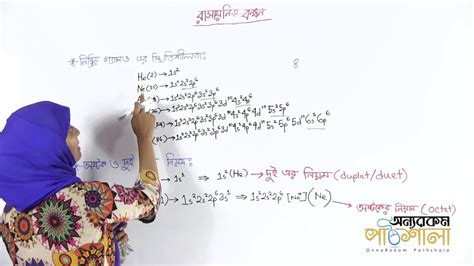 রাসায়নিক বন্ধন
* নিষ্ক্রিয় গ্যাসের এর স্থিতিশীলতাঃ
8
He(2) → 1s²
Ne(10) → 1s²2s²2p⁶
→ 1s²2s²2p⁶3s²3p⁶
(36) → 1s²2s²2p⁶3s²3p⁶3d¹⁰4s²4p⁶
(54) → 1s²2s²2p⁶3s²3p⁶3d¹⁰4s²4p⁶4d¹⁰5s²5p⁶
(86) →
অষ্টক ও দুই নিয়মঃ
→ 1s¹ → 1s²(He) → দুই এর নিয়ম (duplet/duet)
→ 1s²2s²2p⁶3s¹ → 1s²2s²2p⁶ [Na⁺](Ne) → অষ্টকের নিয়ম (Octet)
অন্যরকম
পাঠশালা
OnnoRokom Pathshala